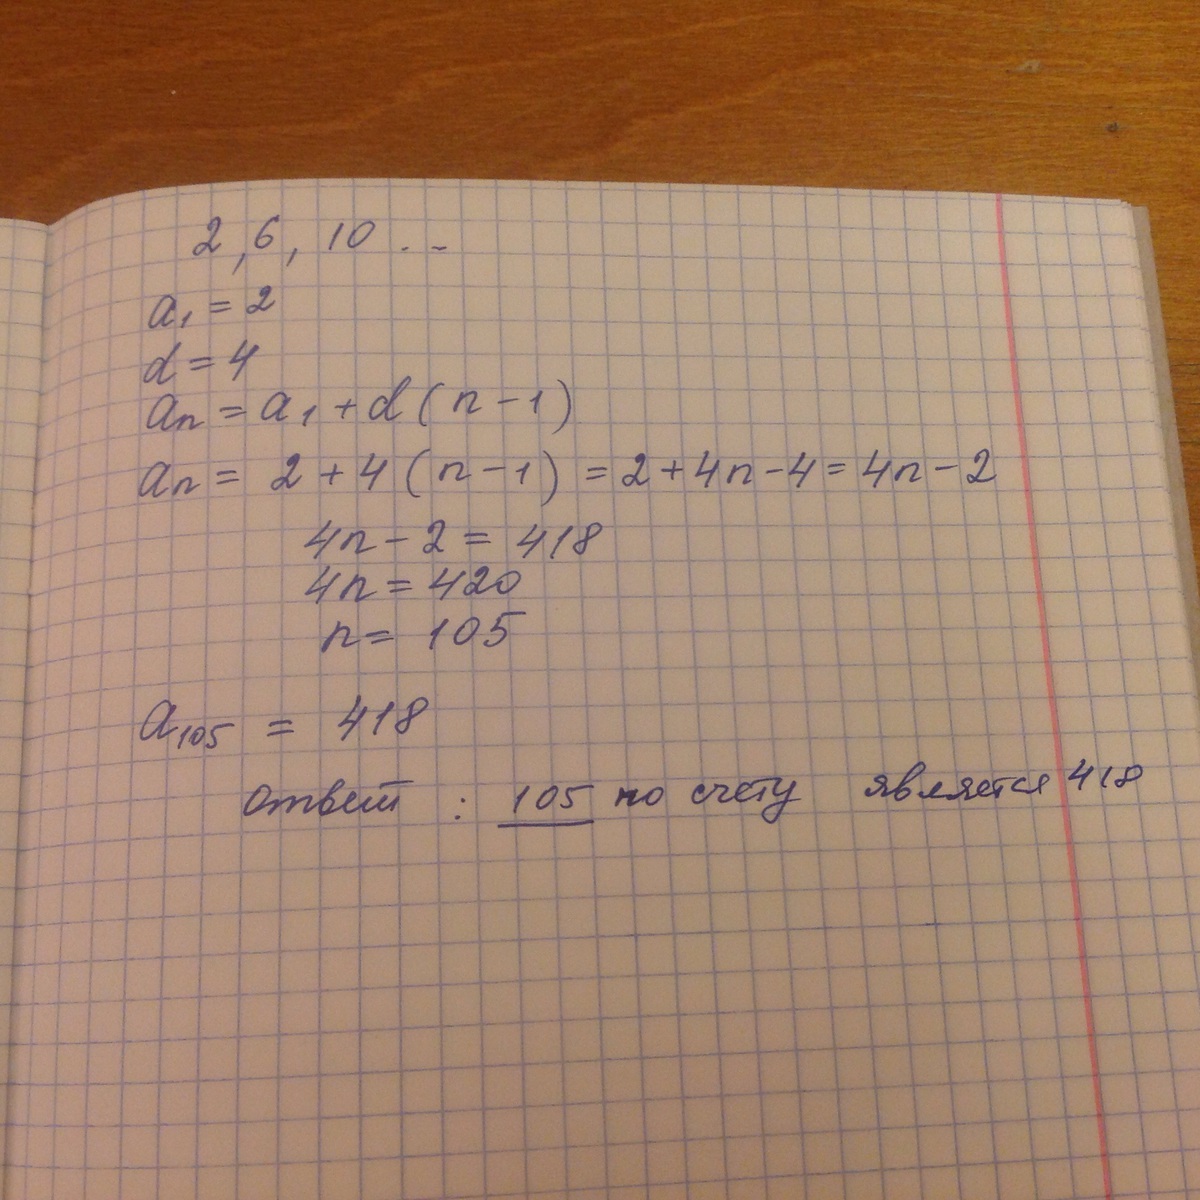 2, 6, 10 ...
a₁ = 2
d = 4
aₙ = a₁ + d (n - 1)
aₙ = 2 + 4 (n - 1) = 2 + 4n - 4 = 4n - 2
4n - 2 = 418
4n = 420
n = 105
a₁₀₅ = 418
ответ : 105 по счету является 418